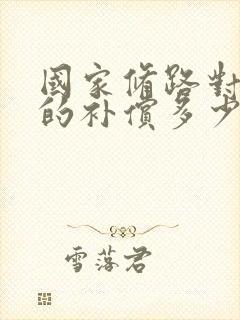 國家修路對
的补償多少
雪落君